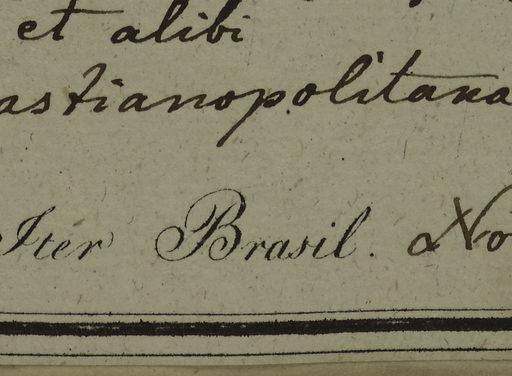 et alibi
astianopolitana
Iter Brasil. No